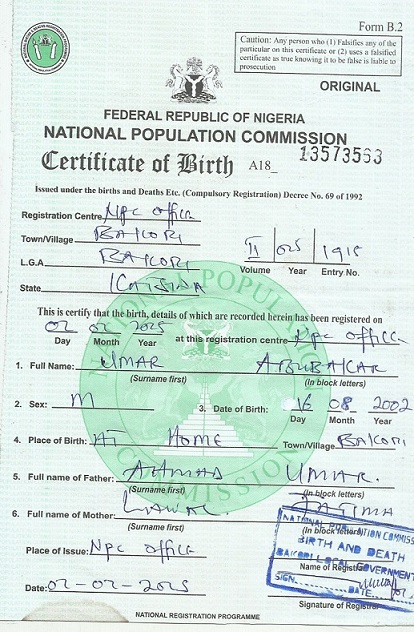 Form B.2
Caution: Any person who (1) Falsifies any of the
particular on this certificate or (2) uses a falsified
certificate as true knowing it to be false is liable to
prosecution
ORIGINAL
FEDERAL REPUBLIC OF NIGERIA
NATIONAL POPULATION COMMISSION
Certificate of Birth A18_ 13573563
Issued under the births and Deaths Etc. (Compulsory Registration) Decree No. 69 of 1992
Registration Centre NPC OFFICE
Town/Village BAKORI
L.G.A BAKORI
State KATSINA
II 025 1915
Volume Year Entry No.
This is certify that the birth, details of which are recorded herein has been registered on
02 02 2025 at this registration centre NPC OFFICE
Day Month Year
1. Full Name: UMAR ABUBAKAR
(Surname first) (In block letters)
2. Sex: M 3. Date of Birth: 16 08 2002
Day Month Year
4. Place of Birth: AT HOME Town/Village BAKORI
5. Full name of Father: AHMAD UMAR.
(Surname first) (In block letters)
6. Full name of Mother: LAWAL FATIMA
(Surname first) (In block letters)
Place of Issue: NPC OFFICE
Name of Registrar
Date: 02-02-2025
Signature of Registrar
NATIONAL POPULATION COMMISSION
BIRTH AND DEATH
BAKORI LOCAL GOVERNMENT
SIGN. DATE
NATIONAL REGISTRATION PROGRAMME